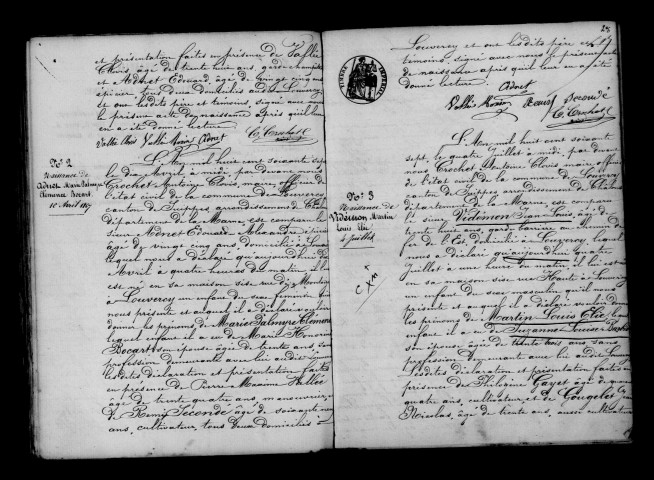 et présentation faites en présence de Vallée
Clovis âgé de trente huit ans, garde-champêtre
et Adnet Edouard, âgé de vingt cinq ans
épicier, tous deux domiciliés à Louvercy
et ont lesdits père et témoins, signé avec nous
le présent acte de naissance après qu'il leur
en a été donné lecture.
Adnet
C. Crochet
N° 2
Naissance de
Adnet Marie Palmyre
Clémence Honoré
10 Avril 1867
L'An mil huit cent soixante sept
le dix Avril, à midi par devant nous
Crochet Antoine Clovis, maire, officier
de l'état civil de la commune de Louvercy
canton de Suippes, arrondissement de Châl
département de la Marne, est comparu le
sieur Adnet Edouard Alexandre, épicier
âgé de vingt cinq ans, domicilié à Louv
lequel nous a déclaré qu'aujourd'hui dix
Avril à quatre heures du matin, il
est né en sa maison sise rue
à Louvercy un enfant du sexe féminin qu'il
nous présente et auquel il a déclaré vouloir
donner les prénoms de Marie Palmyre Clémence
lequel enfant il a eu de Marie Honorine
Bocart son épouse âgée de trente ans, sans
profession demeurant avec lui audit Louvercy
lesdites déclaration et présentation faites
en présence de Pierre Maxime Vallée
âgé de trente quatre ans, manouvrier, et
de Remi Secondé âgé de soixante
ans, cultivateur, tous deux domiciliés à
Louvercy et ont lesdits père et
témoins, signé avec nous le présent acte
de naissance après qu'il leur en a été
donné lecture.
Adnet
Vallée Maxime
Secondé
C. Crochet
N° 3
Naissance de
Vidémon Martin
Louis Elie
4 Juillet
L'An mil huit cent soixante
sept, le quatre Juillet à midi, par devant
nous Crochet, Antoine Clovis, maire officier
de l'état civil de la commune de Louvercy
canton de Suippes arrondissement de Châlons
département de la Marne, est comparu
le sieur Vidémon Jean Louis, âgé de
trente huit ans, garde barrière au chemin de
fer de l'Est domicilié à Louvercy, lequel
nous a déclaré qu'aujourd'hui quatre
Juillet à une heure du matin il lui est né
en sa maison sise rue Haute à Louvercy
un enfant du sexe masculin qu'il nous
présente et auquel il a déclaré vouloir donner
les prénoms de Martin Louis Elie lequel
enfant il a eu de Suzanne Louise
son épouse âgée de trente trois ans sans
profession demeurant avec lui audit Louvercy
Lesdites déclaration et présentation faites en
présence de Philogène Gayet âgé de
quatre ans, cultivateur, et de Gougelet
Nicolas, âgé de trente ans, aussi cultivateur